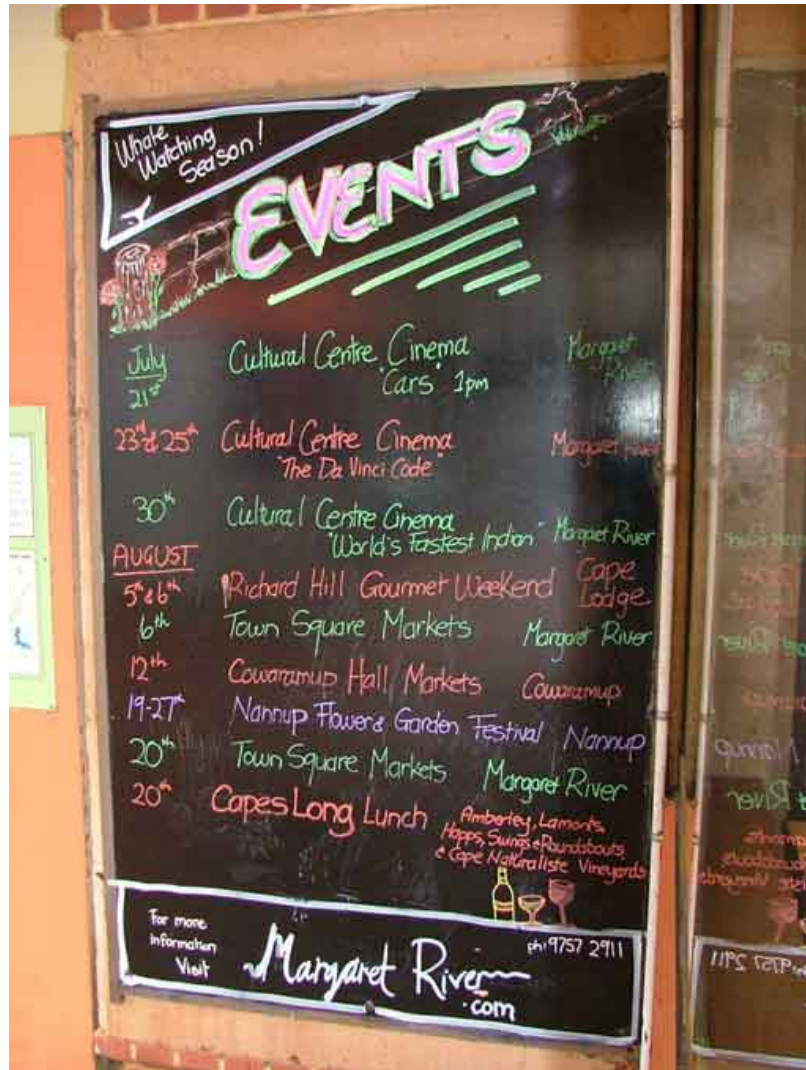 Whale
Watching
Season!
EVENTS
July
21st Cultural Centre Cinema Margaret River
"Cars" 1pm
23rd & 25th Cultural Centre Cinema Margaret River
"The Da Vinci Code"
30th Cultural Centre Cinema
"World's Fastest Indian" Margaret River
AUGUST
5th & 6th Richard Hill Gourmet Weekend Cape Lodge
6th Town Square Markets Margaret River
12th Cowaramup Hall Markets Cowaramup
19-27th Nannup Flower & Garden Festival Nannup
20th Town Square Markets Margaret River
20th Capes Long Lunch Amberley, Lamonts,
Happs, Swings & Roundabouts,
& Cape Naturaliste Vineyards
For more
information
Visit
Margaret River
.com
ph: 9757 2911